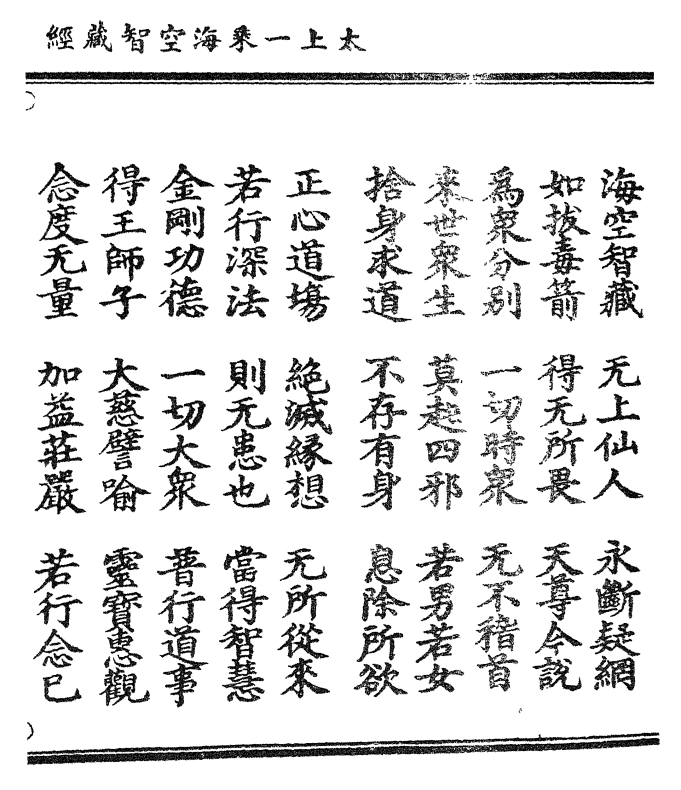 太上一乘海空智藏經
海空智藏 无上仙人 永斷疑網
如拔毒箭 得无所畏 天尊今說
為衆分別 一切時衆 无不稽首
來世衆生 莫起四邪 若男若女
捨身求道 不存有身 息除所欲
正心道塲 絶滅緣想 无所從來
若行深法 則无患也 當得智慧
金剛功德 一切大衆 普行道事
得王師子 大慈譬喻 靈寶惠觀
念度无量 加益莊嚴 若行念已